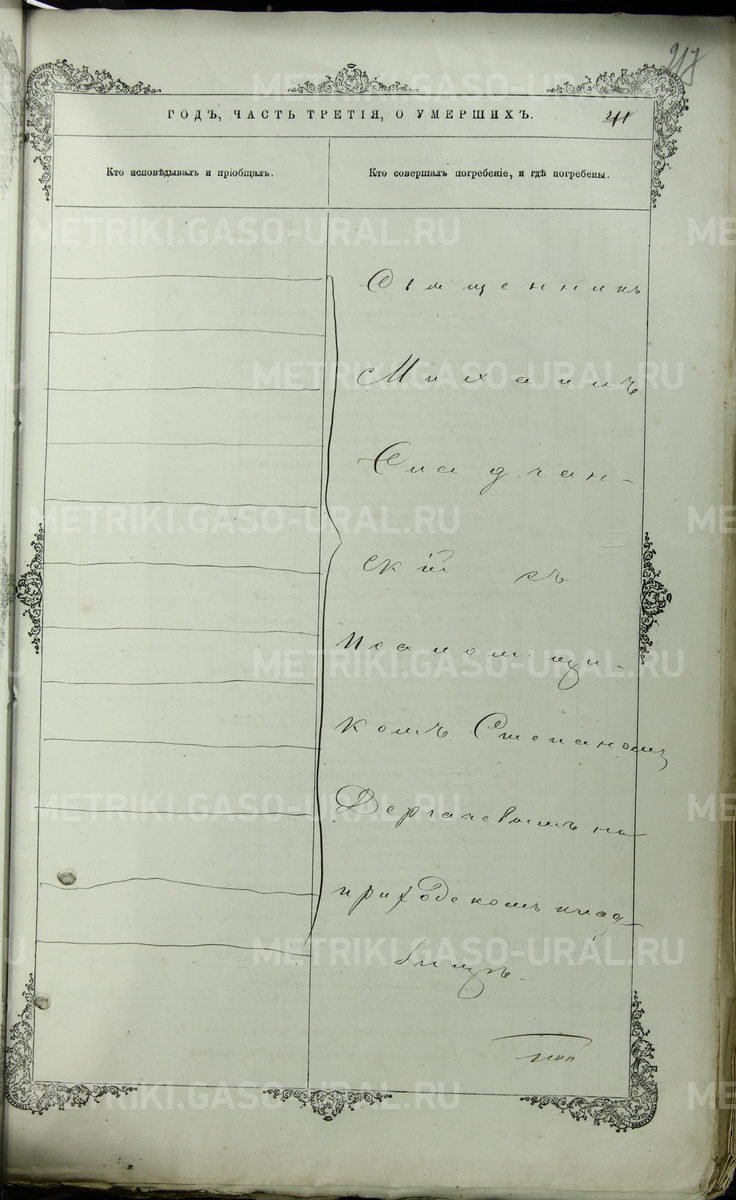 217
ГОДЪ, ЧАСТЬ ТРЕТІЯ, О УМЕРШИХЪ.
41
Кто исповѣдывалъ и пріобщалъ.
Кто совершалъ погребеніе, и гдѣ погребены.
Священникъ
Михаилъ
ский съ
псаломщи-
комъ Степаномъ
Дергачевымъ на
приходскомъ клад-
бищѣ.
METRIKI.GASO-URAL.RU